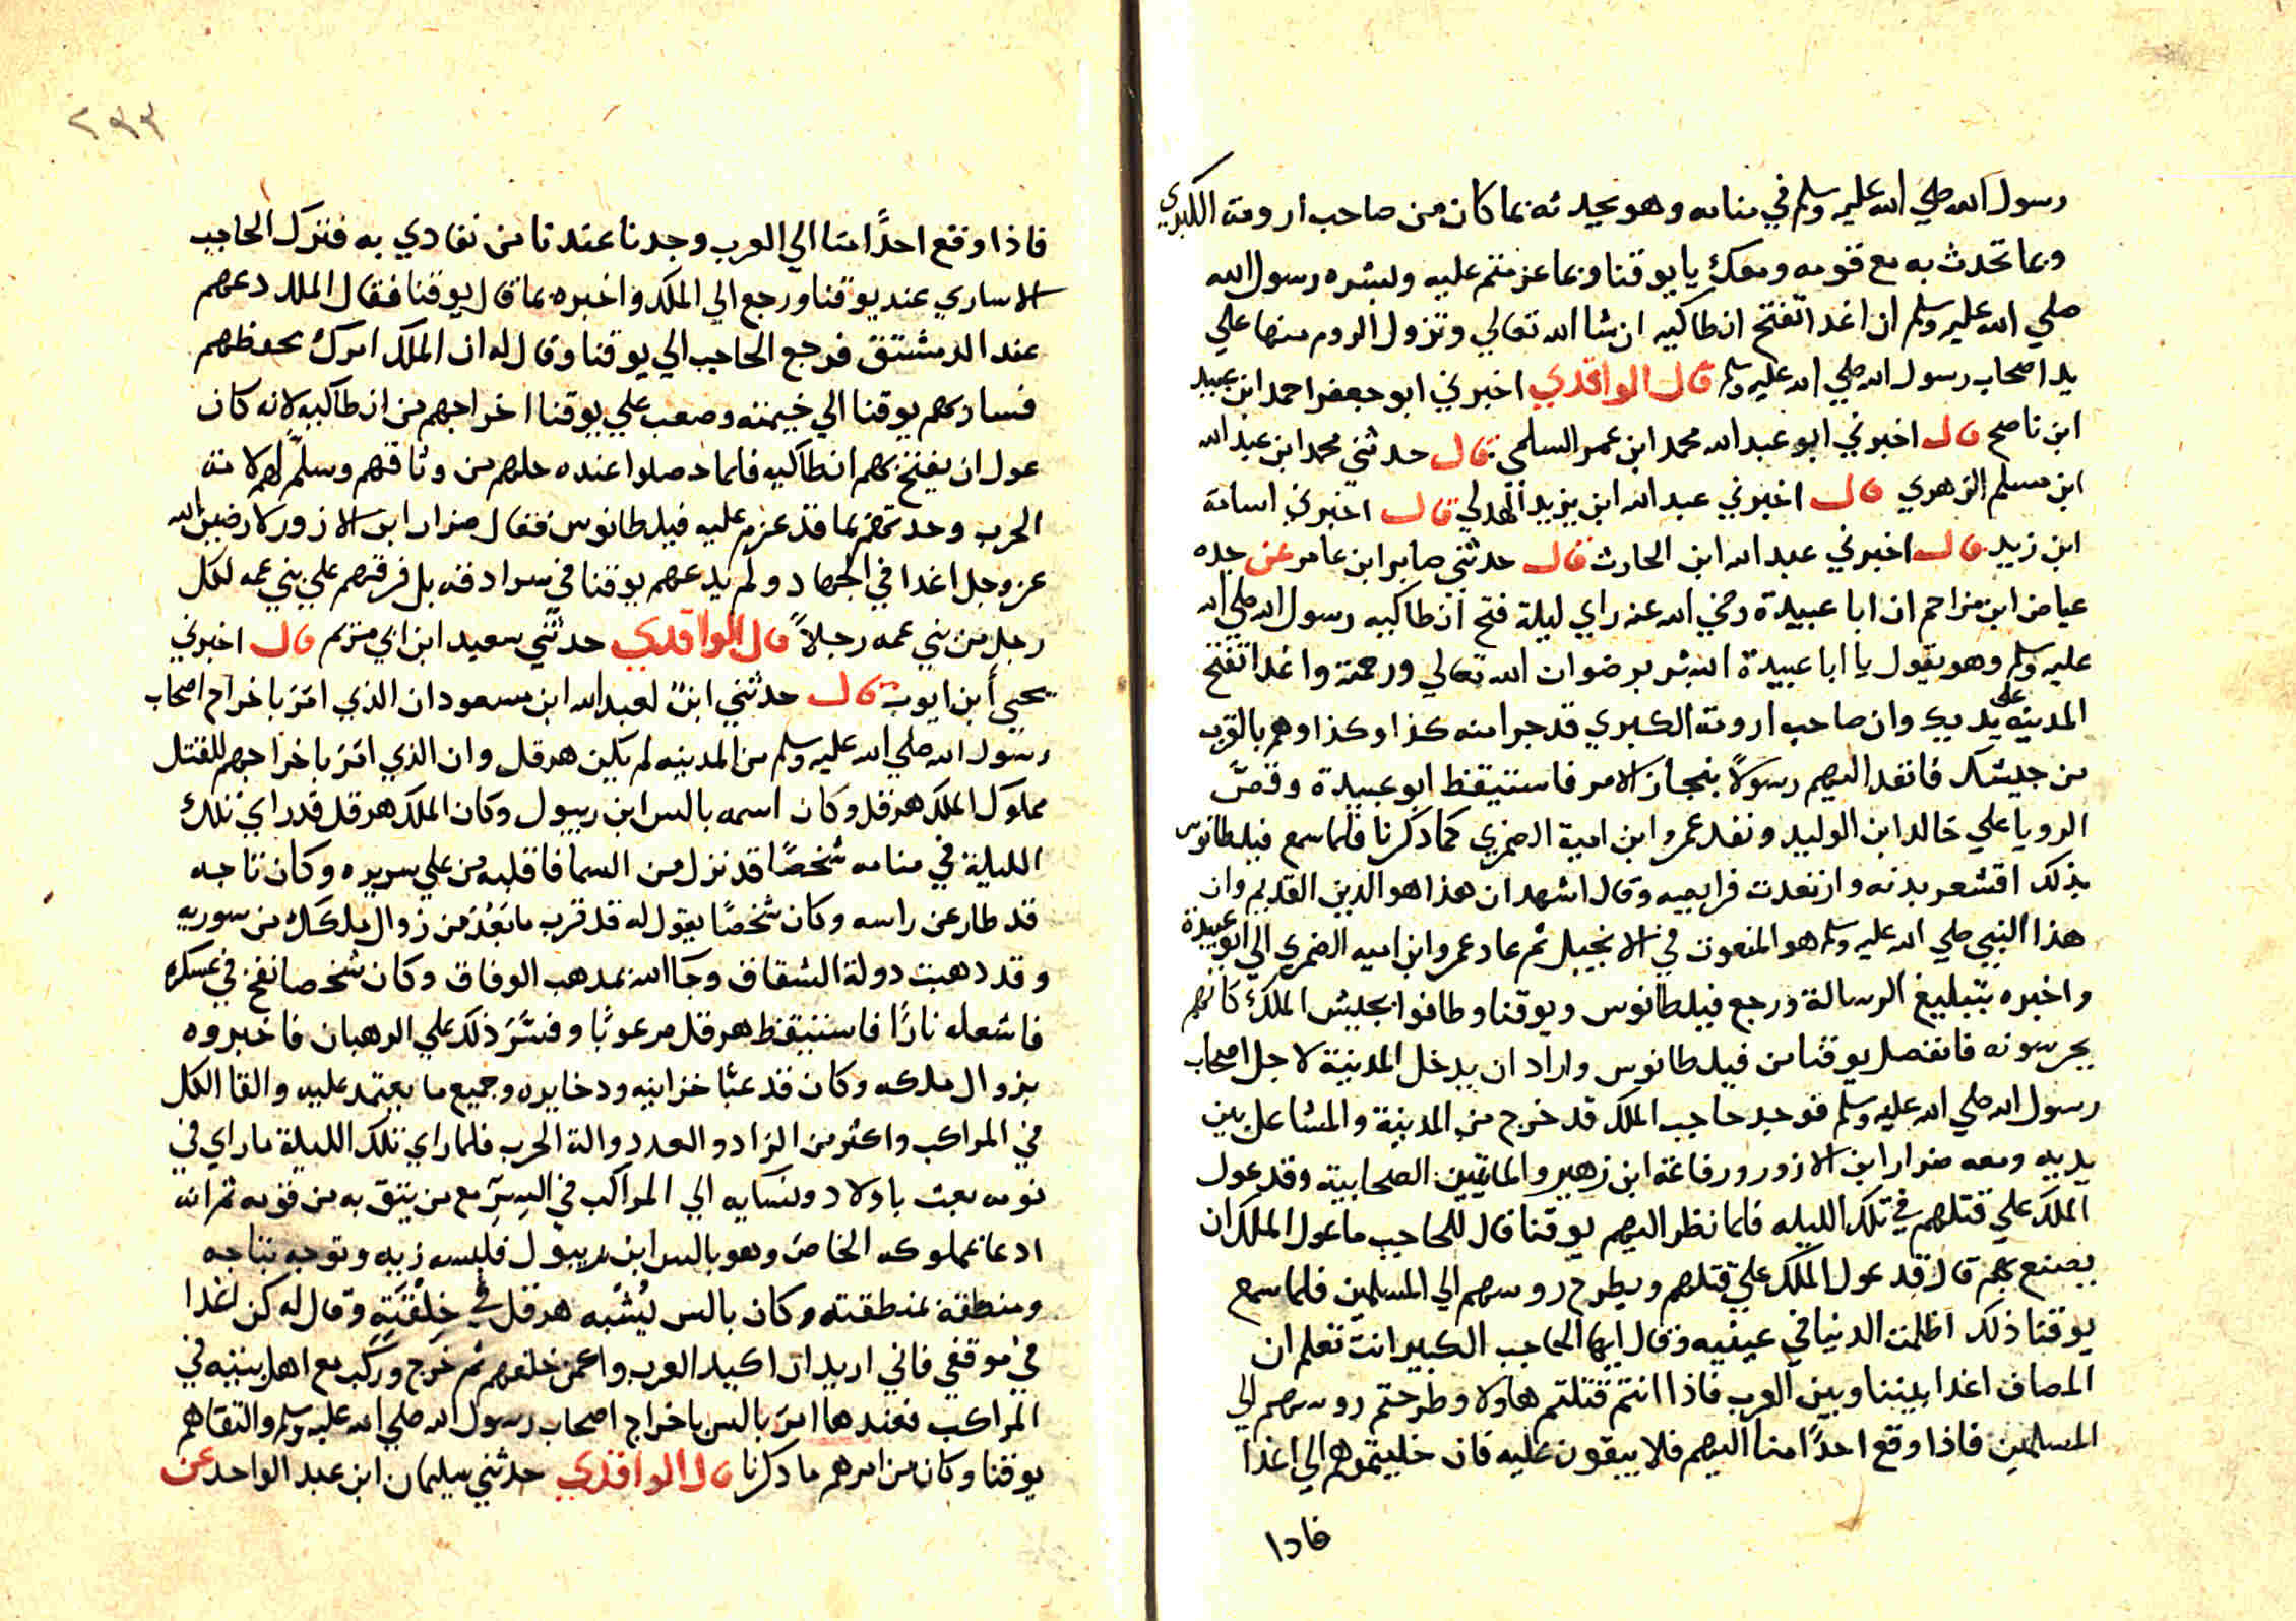 رسول الله صلي الله عليه وسلم في منامه وهو يحدثه بما كان من صاحب ارومة الكبري
وبما تحدث به مع قومه ومعك يا يوقنا وبما عزمتم عليه وبشره رسول الله
صلي الله عليه وسلم ان اغدا تفتح انطاكيه ان شا الله تعالي وتزول الروم منها علي
يد اصحاب رسول الله صلي الله عليه وسلم قال الواقدي اخبرني ابو جعفر احمد ابن عبيد
ابن ناصح قال اخبرني ابو عبد الله محمد ابن عمر السلمي قال حدثني محمد ابن عبد الله
ابن مسلم الزهري قال اخبرني عبد الله ابن يزيد الهدلي قال اخبرني اسامة
ابن زيد قال اخبرني عبد الله ابن الحارث قال حدثني صابر ابن عامر عن جده
عياض ابن مزاحم ان ابا عبيدة رضي الله عنه راي ليلة فتح انطاكيه رسول الله صلي الله
عليه وسلم وهو يقول يا ابا عبيدة ابشر برضوان الله تعالي ورحمة واغدا تفتح
المدينه علي يديك وان صاحب ارومة الكبري قد جرا منه كذا وكذا وهم بالقرب
من جيشك فانفد اليهم رسولاً بنجاز الامر فاستيقظ ابو عبيدة وقصّ
الرويا علي خالد ابن الوليد ونفد عمرو ابن امية الضمري كما دكرنا فلما سمع فيلطانوس
بذلك اقشعر بدنه وارتعدت فرايصه وقال اشهد ان هذا هو الدين القديم وان
هذا النبي صلي الله عليه وسلم هو المنعوت في الانجيل ثم عاد عمرو ابن اميه الضمري الي ابو عبيدة
واخبره بتبليغ الرسالة ورجع فيلطانوس ويوقنا وطافوا بجيش الملك كانهم
يحرسونه فانفصل يوقنا من فيلطانوس واراد ان يدخل المدينة لاجل اصحاب
رسول الله صلي الله عليه وسلم فوجد حاجب الملك قد خرج من المدينة والمشاعل بين
يديه ومعه ضرار ابن الازور ورفاعة ابن زهير والمايتين الصحابية وقد عول
الملك علي قتلهم في تلك الليله فلما نظر اليهم يوقنا قال للحاجب ما عول الملك ان
يصنع بهم قال قد عول الملك علي قتلهم ويطرح روسهم الي المسلمين فلما سمع
يوقنا ذلك اظلمت الدنيا في عينيه وقال ايها الحاجب الكبير انت تعلم ان
المصاف اغدا بيننا وبين العرب فاذا انتم قتلتم هاولا وطرحتم روسهم الي
المسلمين فاذا وقع احدًا منا اليهم فلا يبقون عليه فان خليتموهم الي اغدا
فادا
٢٩٣
فاذا وقع احدًا منا الي العرب وجدنا عندنا من نفادي به فنزل الحاجب
الاساري عند يوقنا ورجع الي الملك واخبره بما قال يوقنا فقال الملك دعهم
عند الدمشتق فرجع الحاجب الي يوقنا وقال له ان الملك امرك بحفظهم
فسار بهم يوقنا الي خيمته وصعب علي يوقنا اخراجهم من انطاكيه لانه كان
عول ان يفتح بهم انطاكيه فلما حصلوا عنده حلهم من وثاقهم وسلّم لهم لامة
الحرب وحدثهم بما قد عزم عليه فيلطانوس فقال ضرار ابن الازور لارضين الله
عز وجل اغدا في الجهاد ولم يدعهم يوقنا في سرادقه بل فرقهم علي بني عمه لكل
رجل من بني عمه رجلاً قال الواقدي حدثني سعيد ابن ابي مريم قال اخبرني
يحيي ابن ايوب قال حدثني ابنٌ لعبد الله ابن مسعود ان الذي امر باخراج اصحاب
رسول الله صلي الله عليه وسلم من المدينه لم يكن هرقل وان الذي امر باخراجهم للقتل
مملوك الملك هرقل وكان اسمه بالس ابن ريبول وكان الملك هرقل قد راي تلك
الليلة في منامه شخصًا قد نزل من السما فاقلبه من علي سريره وكان تاجه
قد طار عن راسه وكان شخصًا يقول له قد قرب ما بَعُدَ من زوال ملكك من سوريه
وقد دهبت دولة الشقاق وجاَ الله بمدهب الوفاق وكان شخصا نفخ في عسكره
فاشعله نارًا فاستيقظ هرقل مرعوبًا وفسّر ذلك علي الرهبان فاخبروه
بزوال ملكه وكان قد عبّا خزاينه ودخايره وجميع ما يعتمد عليه والقا الكل
في المراكب واكثر من الزاد والعدد والة الحرب فلما راي تلك الليلة ما راي في
نومه بعث باولاده ونسايه الي المراكب في السِّرِّ مع من يثق به من قومه ثم انه
ادعا بمملوكه الخاص وهو بالس ابن ريبول فلبسه زيه وتوجه بتاجه
ومنطقه بمنطقته وكان بالس يُشْبه هرقل في خِلْقَتِه وقال له كن اغدا
في موقفي فاني اريد ان اكيد العرب واكمن خلفهم ثم خرج وركب مع اهل بيته في
المراكب فعندها امر بالس باخراج اصحاب رسول الله صلي الله عليه وسلم والتقاهم
يوقنا وكان من امرهم ما دكرنا قال الواقدي حدثني سليمان ابن عبد الواحد عن